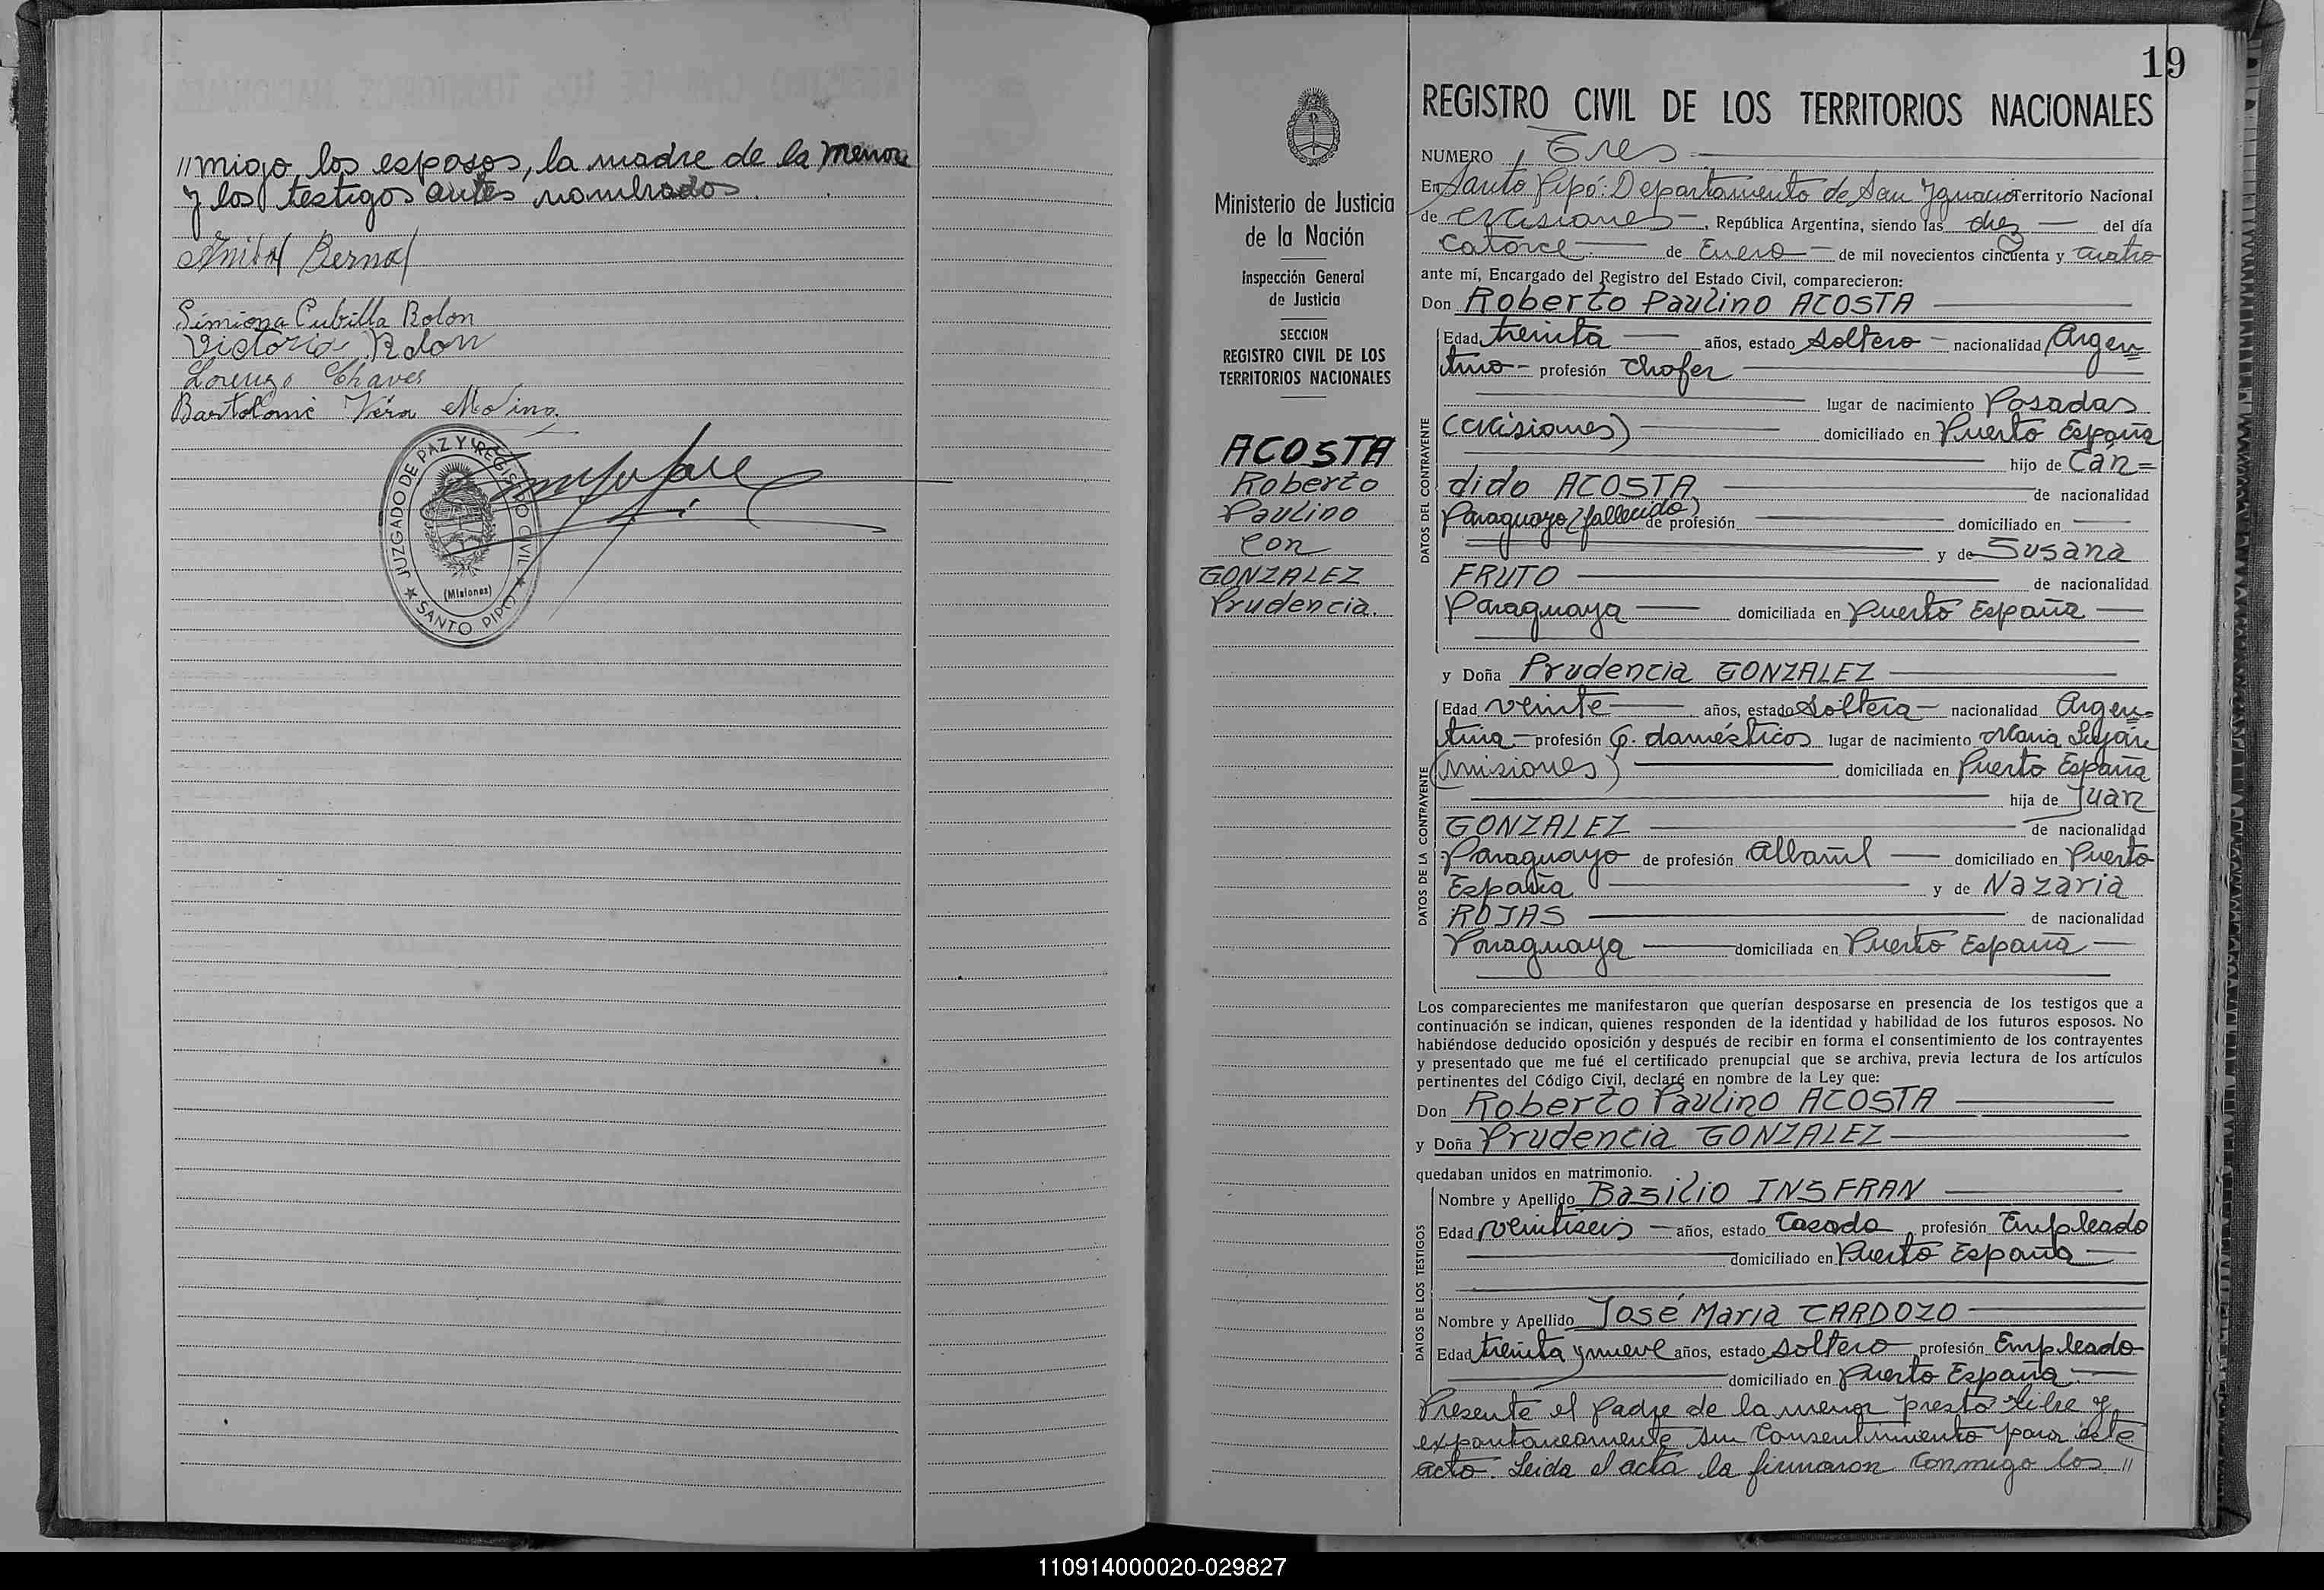 //migo los esposos, la madre de la menor
y los testigos antes nombrados.
Anibal Bernal
Simiona Cubilla Rolon
Victoria Rolon
Lorenzo Chaves
Bartolomé Vera Molina
JUZGADO DE PAZ Y REGISTRO CIVIL
(Misiones)
★ SANTO PIPO ★
19
Ministerio de Justicia
de la Nación
Inspección General
de Justicia
SECCION
REGISTRO CIVIL DE LOS
TERRITORIOS NACIONALES
ACOSTA
Roberto
Paulino
con
GONZALEZ
Prudencia.
REGISTRO CIVIL DE LOS TERRITORIOS NACIONALES
NUMERO Tres
En Santo Pipó: Departamento de San Ygnacio Territorio Nacional
de Misiones, República Argentina, siendo las diez del día
Catorce de Enero de mil novecientos cincuenta y cuatro
ante mí, Encargado del Registro del Estado Civil, comparecieron:
Don Roberto Paulino ACOSTA
DATOS DEL CONTRAYENTE
Edad treinta años, estado soltero nacionalidad Argen=
tino profesión Chofer
lugar de nacimiento Posadas
(Misiones) domiciliado en Puerto España
hijo de Cán=
dido ACOSTA de nacionalidad
Paraguayo (fallecido) de profesión domiciliado en
y de Susana
FRUTO de nacionalidad
Paraguaya domiciliada en Puerto España
y Doña Prudencia GONZALEZ
DATOS DE LA CONTRAYENTE
Edad veinte años, estado soltera nacionalidad Argen=
tina profesión Q. domésticos lugar de nacimiento Maria
(misiones) domiciliada en Puerto España
hija de Juan
GONZALEZ de nacionalidad
Paraguayo de profesión Albañil domiciliado en Puerto
España y de Nazaria
ROJAS de nacionalidad
Paraguaya domiciliada en Puerto España
Los comparecientes me manifestaron que querían desposarse en presencia de los testigos que a
continuación se indican, quienes responden de la identidad y habilidad de los futuros esposos. No
habiéndose deducido oposición y después de recibir en forma el consentimiento de los contrayentes
y presentado que me fué el certificado prenupcial que se archiva, previa lectura de los artículos
pertinentes del Código Civil, declaré en nombre de la Ley que:
Don Roberto Paulino ACOSTA
y Doña Prudencia GONZALEZ
quedaban unidos en matrimonio.
DATOS DE LOS TESTIGOS
Nombre y Apellido Basilio INSFRAN
Edad veintiseis años, estado Casado profesión Empleado
domiciliado en Puerto España
Nombre y Apellido José Maria CARDOZO
Edad treinta y nueve años, estado soltero profesión Empleado
domiciliado en Puerto España
Presente el padre de la menor presto libre y
expontaneamente su consentimiento para éste
acto. Leida el acta la firmaron conmigo los //
110914000020-029827